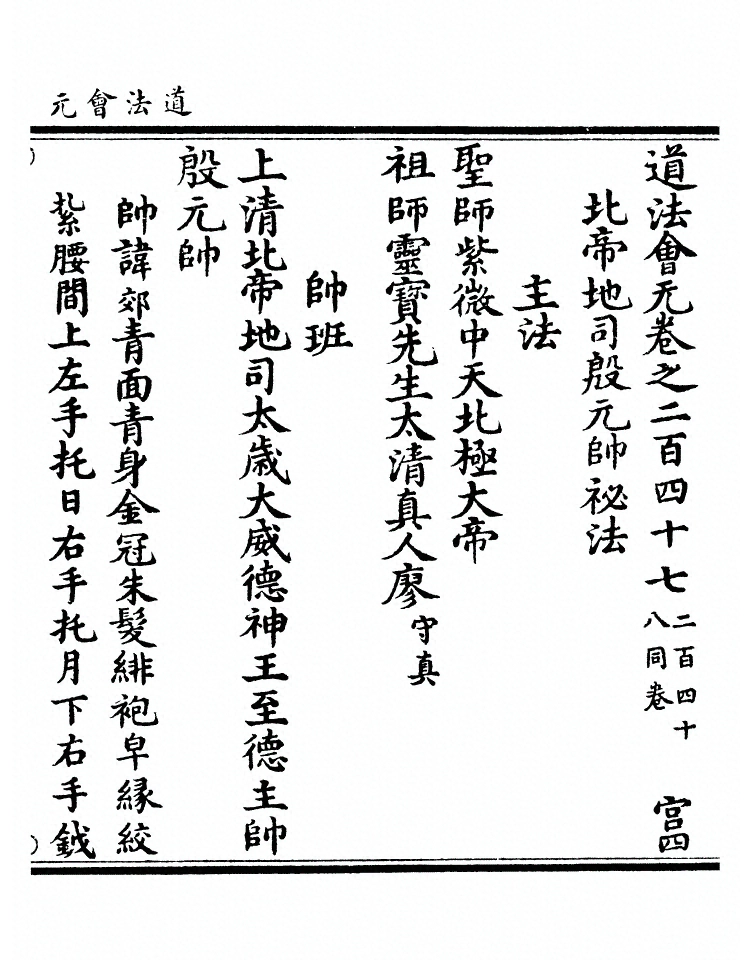 道法會元
道法會元卷之二百四十七 二百四十八同卷 宫四
北帝地司殷元帥祕法
主法
聖師紫微中天北極大帝
祖師靈寶先生太清真人廖守真
帥班
上清北帝地司太歲大威德神王至德主帥
殷元帥
帥諱郊青面青身金冠朱髮緋袍皁縁絞
紮腰間上左手托日右手托月下右手鉞